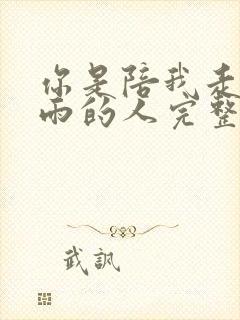 你是陪我走
雨的人完整
武訊